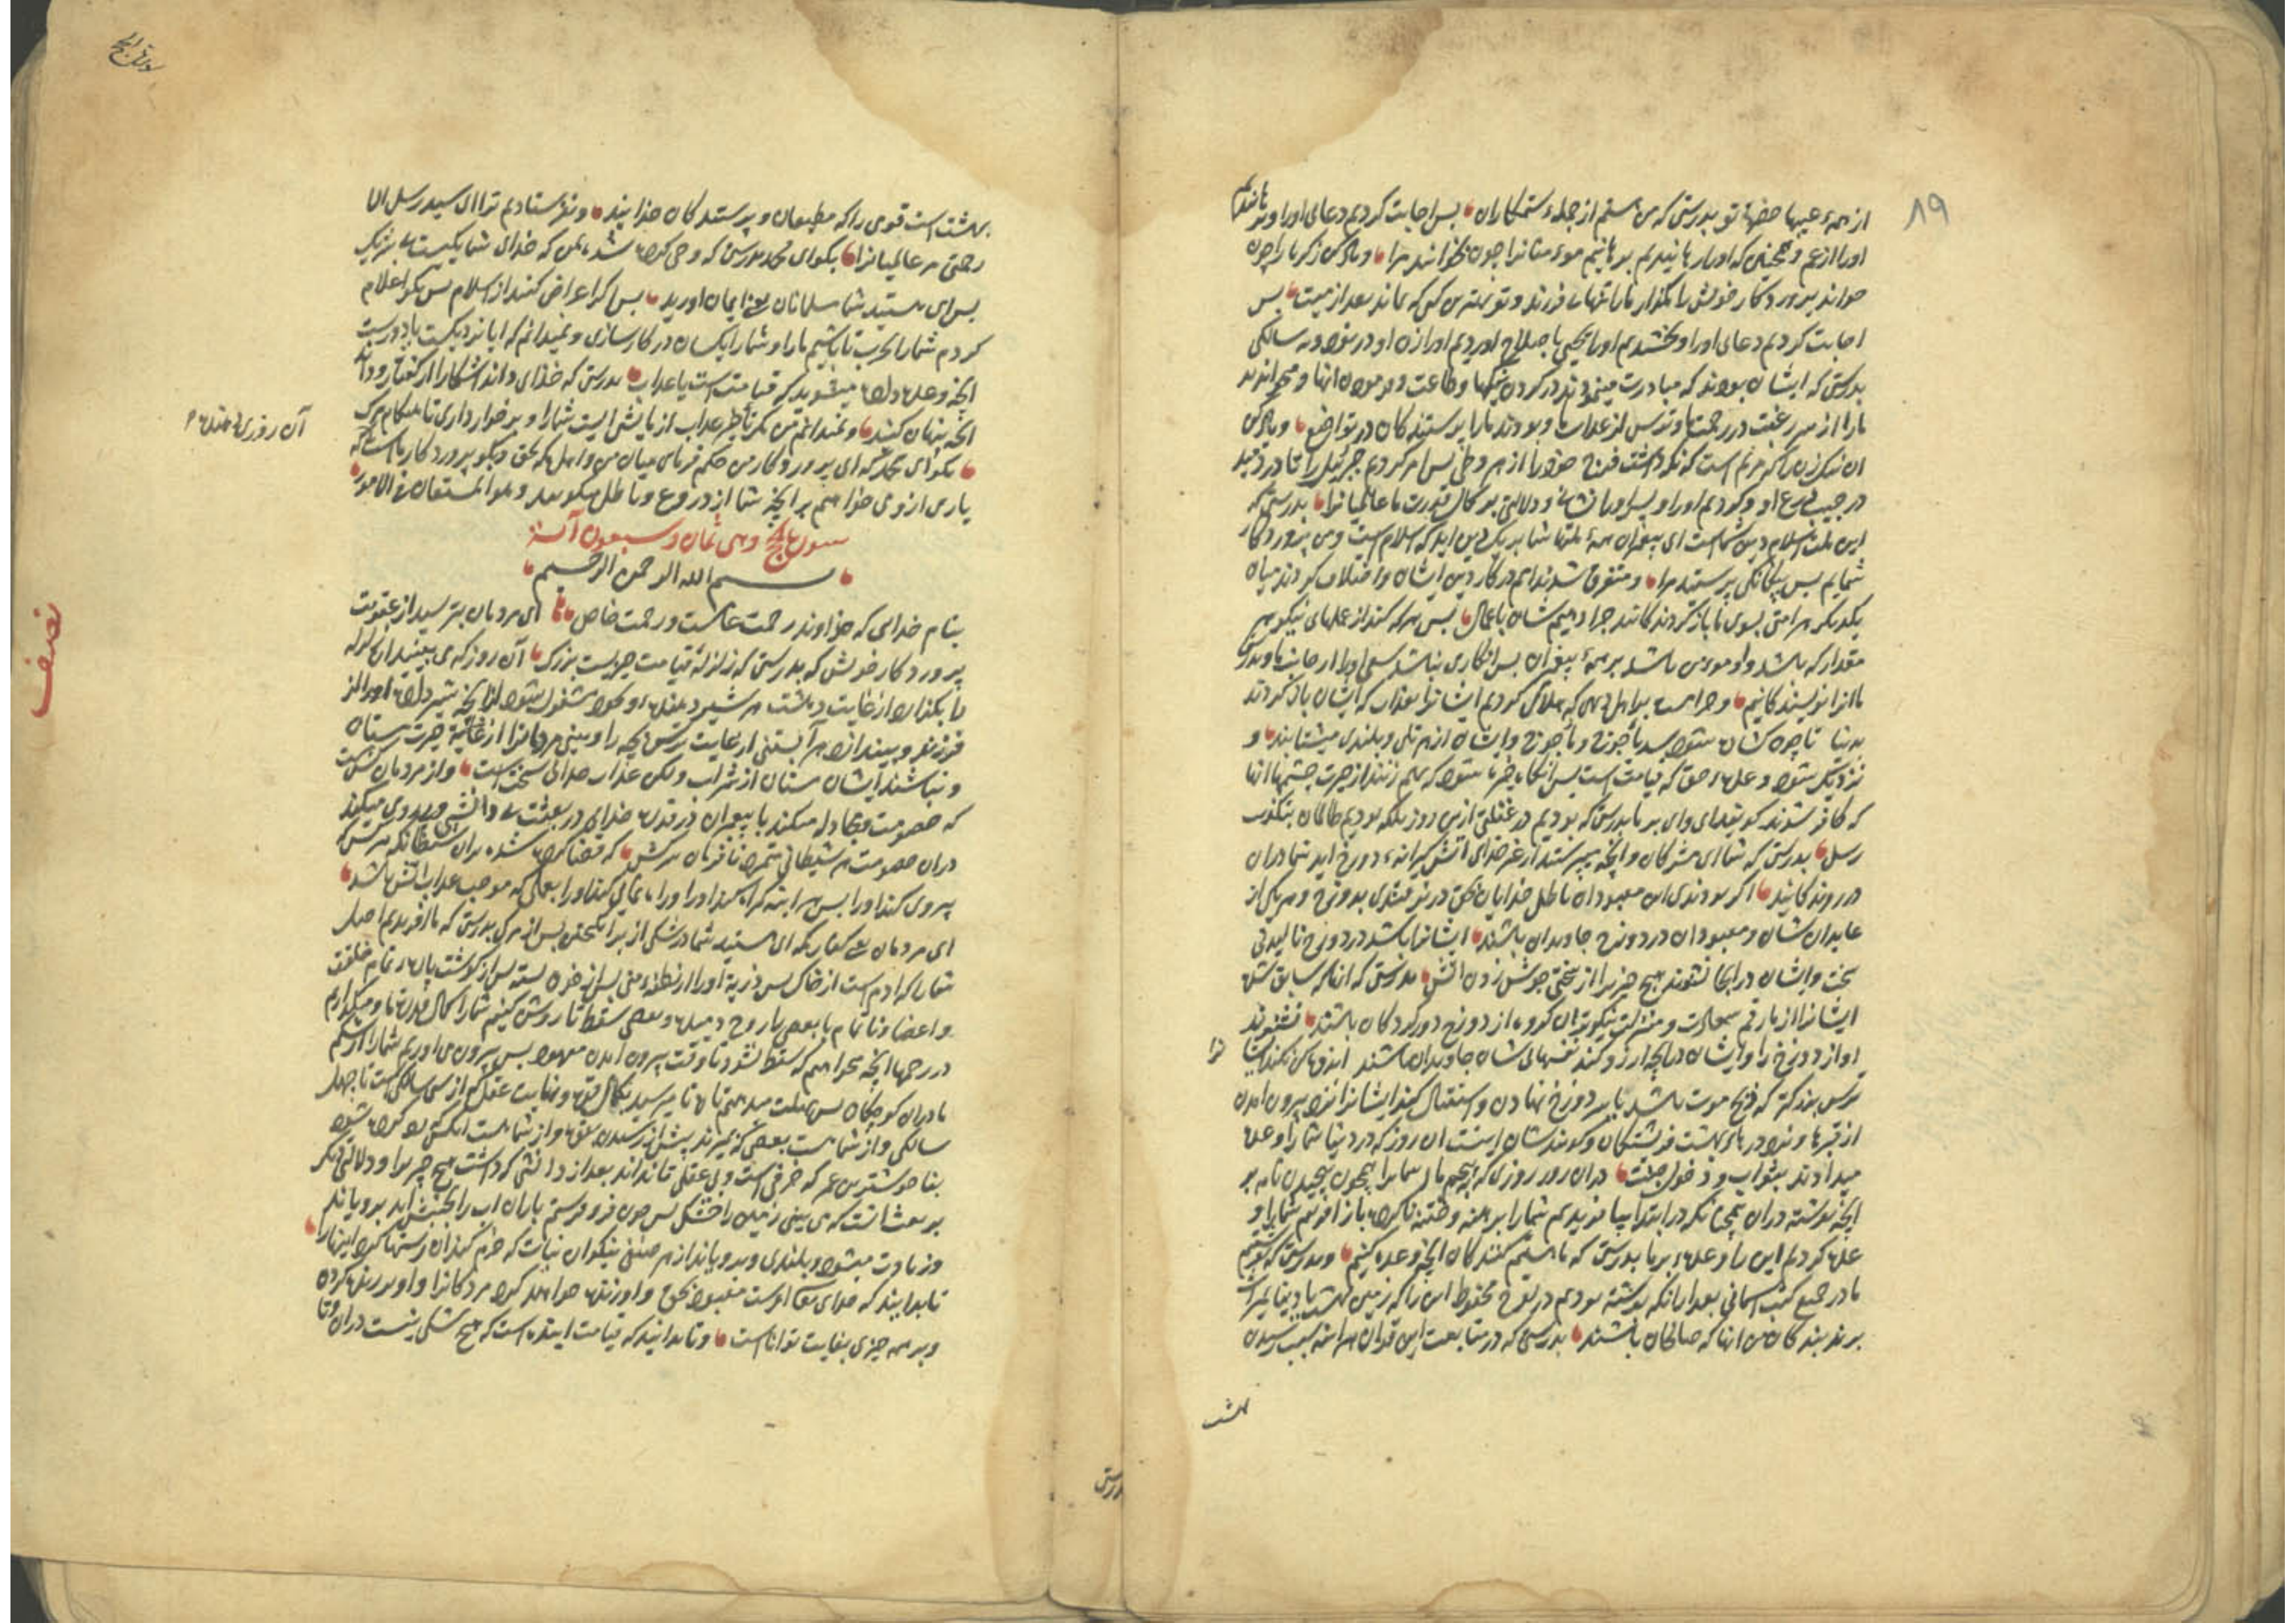 ۸۹
از همهٔ عیبها حضرت تو بدرستی که من هستم از جملهٔ ستمکاران پس اجابت کردیم دعای اورا و برهانیدیم
اورا از غم و همچنین که اورا رهانیدیم برهانیم مؤمنانرا چون بخوانند مرا و یاد کن زکریا را چون
خواند پروردگار خویش را مگذار مارا تنها بی فرزند و تو بهترین کسی که بماند بعد از میت پس
اجابت کردیم دعای اورا و بخشیدیم اورا یحیی باصلاح اوردیم اورا زن او در نود و نه سالگی
بدرستی که ایشان بودند که مبادرت مینمودند در کردن نیکیها و طاعت و
مارا از سر رغبت در رحمت ما و ترس از عذاب ما و بودند مارا پرستندگان در تواضع و یاد کن
ان زن را که مریم است که نکه داشت فرج خودرا از هر وطئ پس امر کردیم جبرئیل را تا در دمید
در جیب درع او و کردیم اورا و پسر اورا نشانه و دلالتی بر کمال قدرت ما عالمیانرا بدرستی که
این ملت اسلام دین شماست ای پیغمبران همهٔ ملتها شما بر یک دین اید که اسلام است و من پروردگار
شمایم پس بیگانگی پرستید مرا و متفرق شدند امم در کار دین ایشان و اختلاف کردند میان
یکدیگر هر امتی بسوی ما بازگردند کانند جزا دهیم شان باعمال پس هر که کند از عملهای نیکو هر
مقدار که باشد و او مومن باشد بر همهٔ پیغمبران پس انکاری نباشد سعی اورا از جانب ما و بدرستی
ماانرا نویسندگانیم و حرامست بر اهل دهی که هلاک کردیم ایشانرا بعذاب که ایشان باز گردند
بدنیا تا چون گشاده شود سد یأجوج و مأجوج و ایشان از هر تلی و بلندی میشتابند و
نزدیک شود وعدهٔ حق که قیامت است پس انگاه
که کافر شدند گویند ای وای بر ما بدرستی که بودیم در غفلتی ازین روز بلکه بودیم ظالمان بتکذیب
رسل بدرستی که شما ای مشرکان و آنچه میپرستید از غیر خدای آتش گیرانهٔ دوزخ اید شما دران
در روندگانید اگر بودندی این معبودان باطل خدایان بحق در نیامدندی بدوزخ و هریکی از
عابدان شان و معبودان در دوزخ جاویدان باشند ایشانرا باشد در دوزخ نالیدنی
سخت و ایشان در انجا نشنوند هیچ چیز را از سختی جوش زدن آتش بدرستی که انانکه سابق شده
ایشانرا از ما رقم سعادت و منزلت نیکوتر ان گروه از دوزخ دور کردگان باشند نشنوند
اواز دوزخ را و ایشان در آنچه ارزو کند نفسهای شان جاویدان باشند اندوهگین نکند ایشانرا
ترس بزرگتر که ذبح موت باشد یا سر دوزخ نهادن و استقبال کنند ایشانرا نزد بیرون امدن
از قبرها و نزد درهای بهشت فرشتگان و گویند شان اینست ان روز که در دنیا شمارا وعده
میدادند بثواب و دخول جنت دران روز روزی که پیچیم ما سمارا همچون پیچیدن نامه بر
آنچه نوشته دران همچنانکه در ابتدا بیافریدیم شمارا برهنه و ختنه ناکرده باز افرینیم شمارا و
وعده کردیم این را وعدهٔ بر ما بدرستی که ما هستیم کنندگان آنچه وعده کنیم و بدرستی که نوشتیم
ما در جمیع کتب اسمانی بعد ازانکه نوشته بودیم در لوح محفوظ این را که زمین بهشت یا دنیا میراث
برند بندگان من انها که صالحان باشند بدرستی که در متابعت این قران هر اینه سبب رسیدن
بهشت
بهشت است قومی راکه مطیعان و پرستندگان خدایند و نفرستادیم ترا ای سید رسل الا
رحمتی مر عالمیانرا بگو ای محمد بدرستی که وحی کرده شد بمن که خدای شما یکیست بی شریک
پس ای هستید شما مسلمانان یعنی ایمان اورید پس اگر اعراض کنند از اسلام پس بگو اعلام
کردم شمارا بحرب تا باشیم ما و شما یکسان در کارسازی و نمیدانم که ایا نزدیکست یا دورست
آنچه وعده داده میشوید که قیامتست یا عذاب بدرستی که خدای داند اشکارا از گفتار و داند
آنچه پنهان کنید و نمیدانم من مگر تأخیر عذاب ازمایشی است شمارا و برخورداری تا هنگام مرگ
بگو ای محمد که ای پروردگار من حکم فرمای میان من و اهل مکه بحق و بگو پروردگار ما است که
یاری از وی خواهیم بر آنچه شما از دروغ و باطل میگویید و هو المستعان فی الامور
سورة الحج وهی ثمان وسبعون آیة
بسم الله الرحمن الرحیم
بنام خدای که خداوند رحمت عامست و رحمت خاص ای مردمان بترسید از عقوبت
پروردگار خویش که بدرستی که زلزلهٔ قیامت چیزیست بزرگ آن روز که می بینید ان زلزله
را بگذارد از غایت دهشت هر شیر دهنده او و کودک مشغول شود از آنچه شیر داده اورا از
فرزند و بیندازد هر آبستنی از غایت ترس بچه را و بینی مردمانرا از غایت حیرت مستان
و نباشند ایشان مستان از شراب و لکن عذاب خدای سخت است و از مردمان کس است
که خصومت و مجادله میکند با پیغمبران در قدرت خدای در بعثت بی دانشی و پیروی میکند
دران خصومت هر شیطانی متمرد نافرمان سرکش که قضا کرده شده بران شیطانکه هر کس که
پیروی کند اورا پس هر اینه گراه کند اورا و راه نمایی کند اورا بعملی که موجب عذاب آتش باشد
ای مردمان بی گفتار مکه ای هستید شما در شکی از برانگیختن پس از مرگ بدرستی که ماافریدیم اصل
شمارا که ادم است از خاک پس ذریهٔ اورا از نطفهٔ منی پس از خون بسته پس از گوشت پارهٔ تمام خلقت
و اعضا و ناتمام یا بعضی با روح دمیده و بعضی سقط تا روشن کنیم شمارا کمال قدرت ما و میگذاریم
در رحمها آنچه میخواهیم که سقط نشود تا وقت بیرون امدن معهود پس بیرون می اوریم شمارا از شکم
مادران کوچگان پس مهلت میدهیم تان تا میرسید بکمال قوت و نهایت عقل که از سی سالگی است تا چهل
سالگی و از شما هست بعضی که بمیرد پیش از رسیدن بقوت و از شما هست انکس که رد کرده شود
بناخوشترین عمر که خرفی است و بی عقلی تا نداند بعد از دانشی که داشت هیچ چیز را و دلالتی دیگر
بر بعث انست که می بینی زمین را خشک پس چون فرو فرستیم باران اب را بجنبش اید برویاند
و زیادت میشود و بلندی و برویاند از هر صنفی نیکو ان نبات که خرم کند ان رستنها کرد اینهارا
تا بدانید که خدای تعالی اوست معبود بحق و او زنده خواهد کرد مردگانرا و او زنده کرده
و بر همه چیزی بغایت تواناست و تا بدانید که قیامت آینده است که هیچ شکی نیست دران و تا
سورة الحج